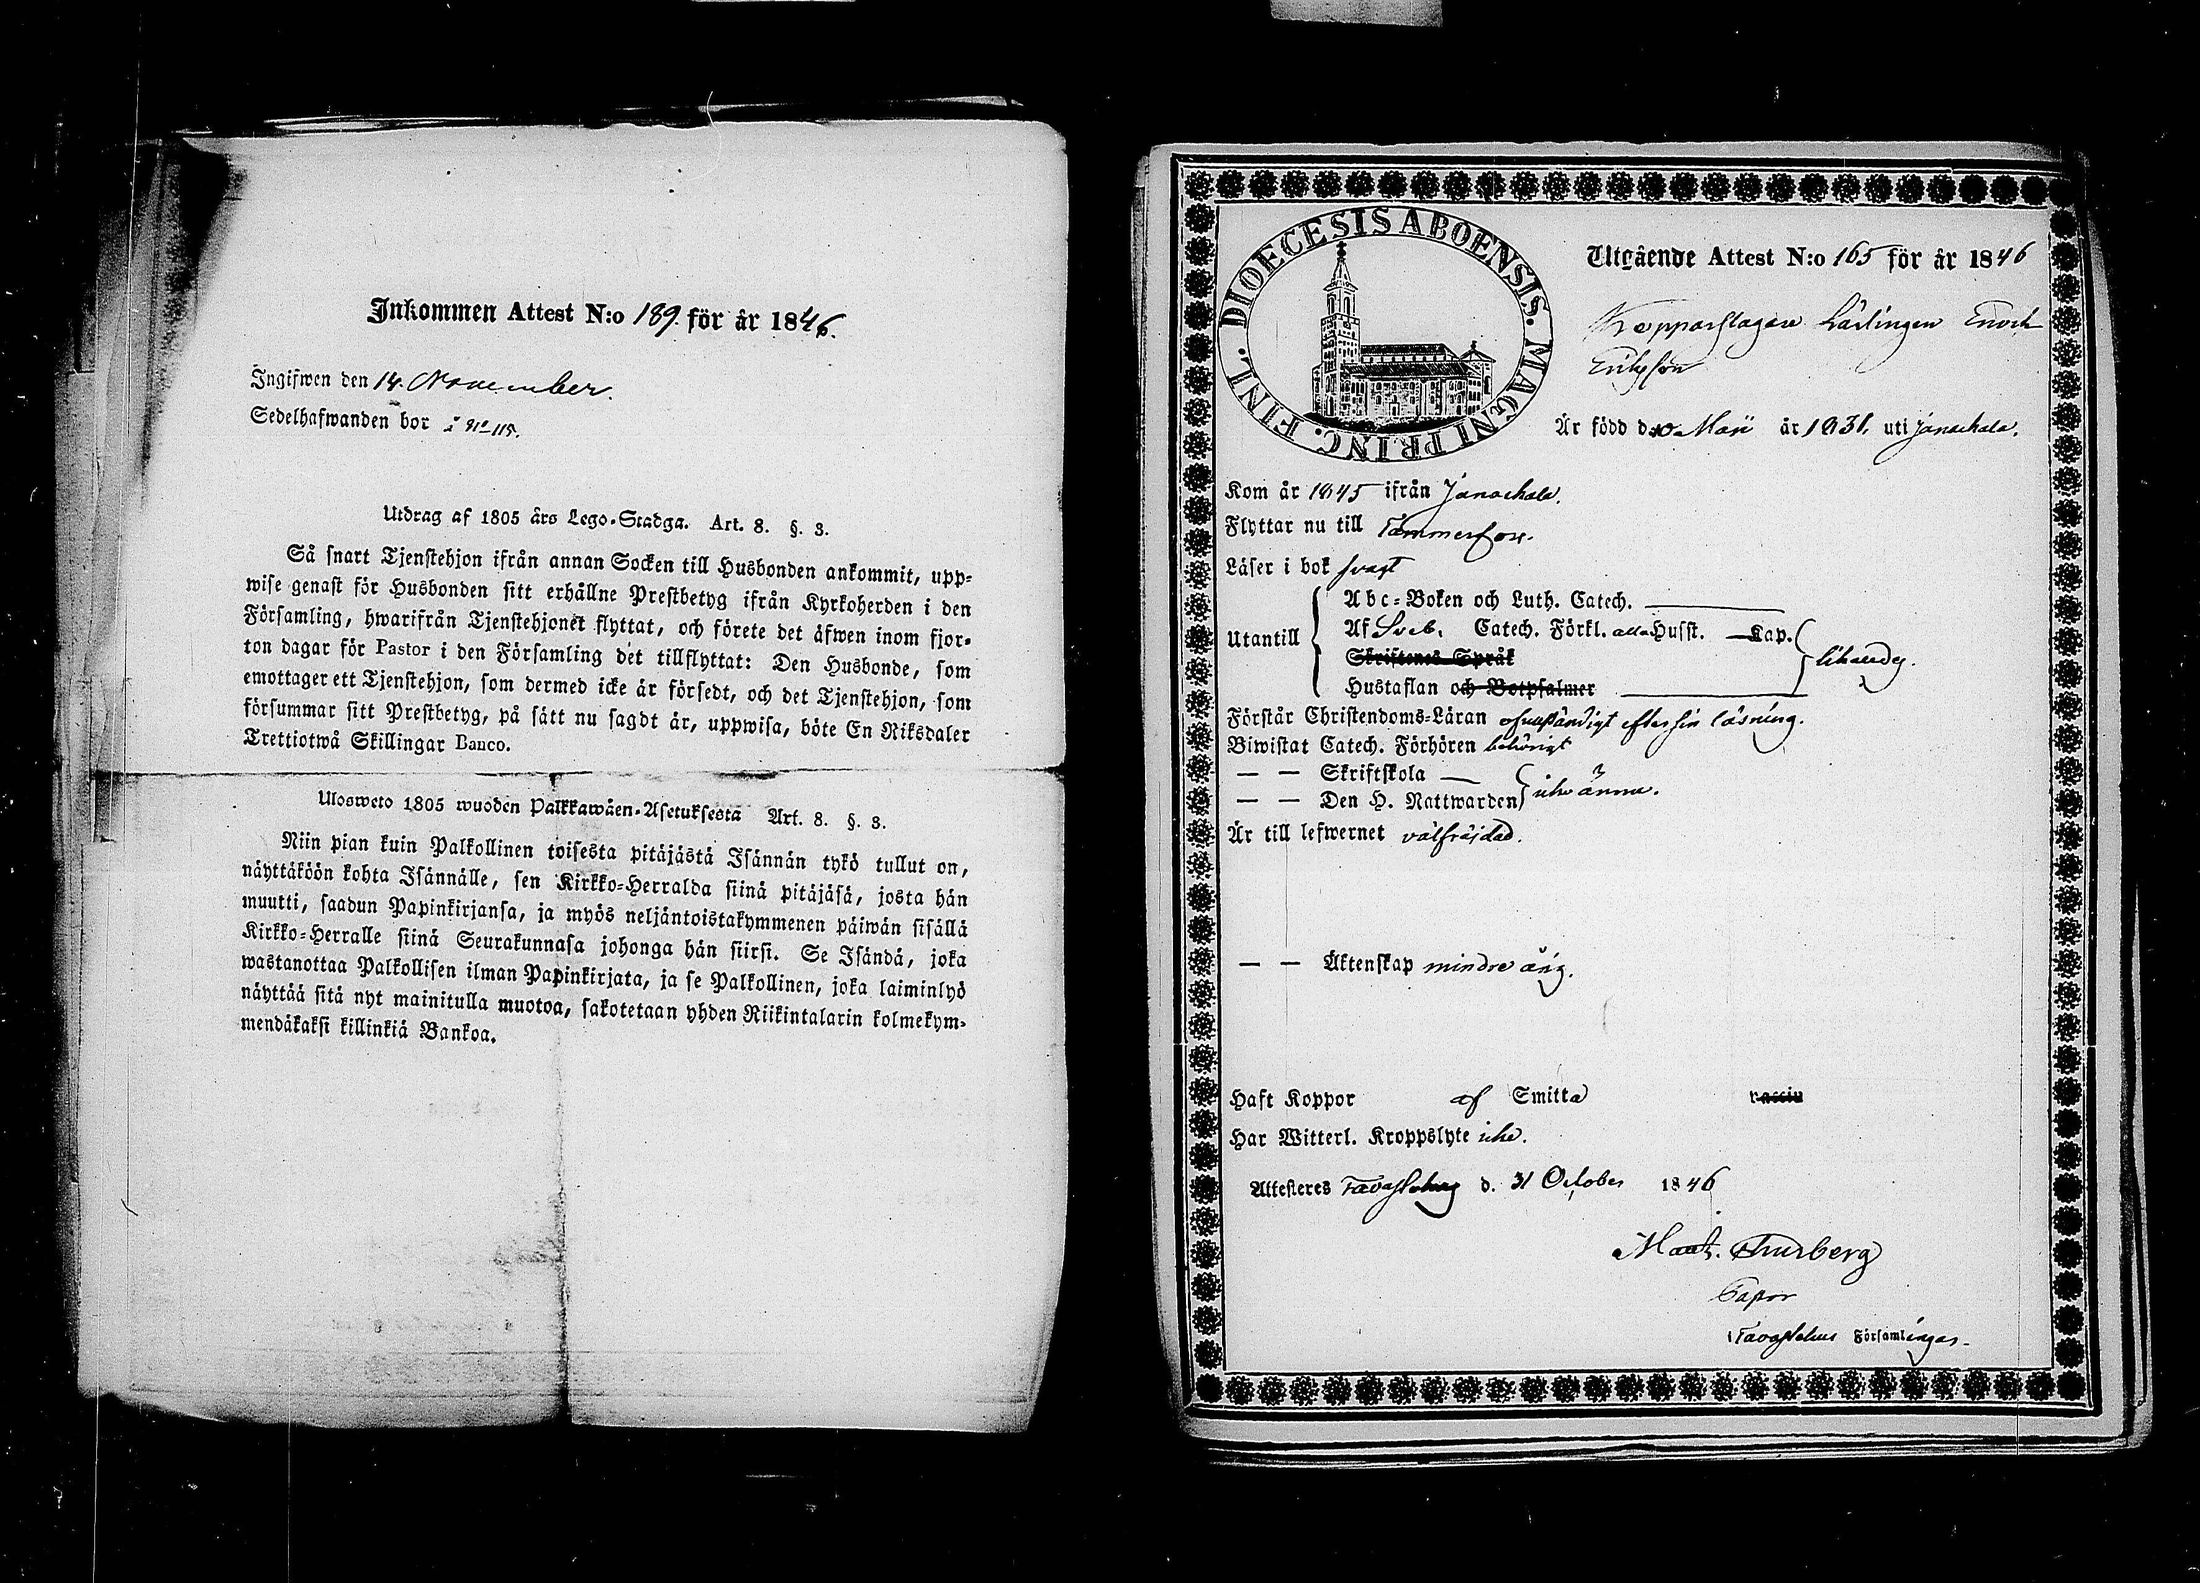 Inkommen Attest N:o 189. för år 1846.
Ingifwen den 14. November.
Sedelhafwanden bor i No 115.
Utdrag af 1805 års Lego-Stadga. Art. 8. §. 3.
Så snart Tjenstehjon ifrån annan Socken till Husbonden ankommit, upp-
wise genast för Husbonden sitt erhållne Prestbetyg ifrån Kyrkoherden i den
Församling, hwarifrån Tjenstehjonet flyttat, och förete det äfwen inom fjor-
ton dagar för Pastor i den Församling det tillflyttat: Den Husbonde, som
emottager ett Tjenstehjon, som dermed icke är försedt, och det Tjenstehjon, som
försummar sitt Prestbetyg, på sätt nu sagdt är, uppwisa, böte En Riksdaler
Trettiotwå Skillingar Banco.
Ulosweto 1805 wuoden Palkkawäen-Asetuksesta Art. 8. §. 3.
Niin pian kuin Palkollinen toisesta pitäjästä Isännän tykö tullut on,
näyttäköön kohta Isännälle, sen Kirkko-Herralda siinä pitäjäsä, josta hän
muutti, saadun Papinkirjansa, ja myös neljäntoistakymmenen päiwän sisällä
Kirkko-Herralle siinä Seurakunnasa johonga hän siirsi. Se Isändä, joka
wastanottaa Palkollisen ilman Papinkirjata, ja se Palkollinen, joka laiminlyö
näyttää sitä nyt mainitulla muotoa, sakotetaan yhden Riikintalarin kolmekym-
mendäkaksi killinkiä Bankoa.
DIOECESIS ABOENSIS. MAGNI PRINC. FINL.
Utgående Attest N:o 165 för år 1846
Kopparslagare Lärlingen Enoch
Eriksson
Är född d. 10 Maii år 1831. uti Janackala.
Kom år 1845 ifrån Janackala.
Flyttar nu till Tammerfors.
Läser i bok svagt
Utantill
Abc-Boken och Luth. Catech.
Af Sveb. Catech. Förkl. alla Husst. Kap.
Skriftenes Språk
Hustaflan och Botpsalmer
likaledes.
Förstår Christendoms-Läran ofullständigt efter sin läsning.
Biwistat Catech. Förhören behörigt
— — Skriftskola —
— — Den H. Nattwarden
icke ännu.
Är till lefwernet välfräjdad.
— — Äktenskap mindre årig.
Haft Koppor af Smitta vaccin
Har Witterl. Kroppslyte icke.
Attesteras Tavastehus d. 31 October 1846
Thurberg
Tavastehus Församlingar.